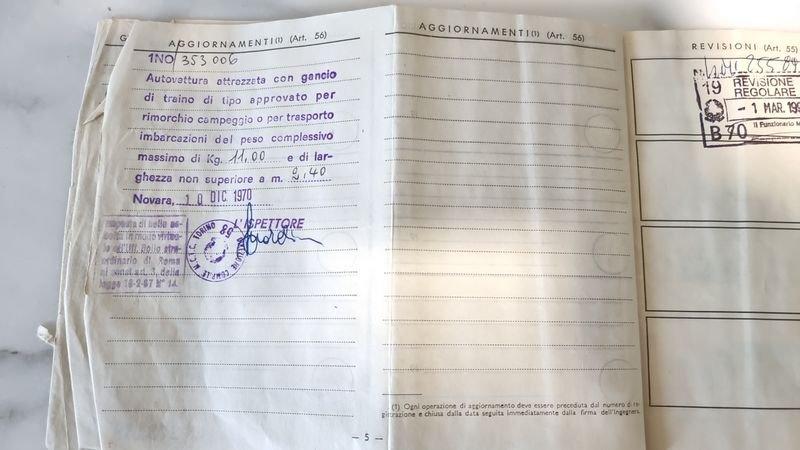 AGGIORNAMENTI (1) (Art. 56)
1NO/353006
Autovettura attrezzata con gancio
di traino di tipo approvato per
rimorchio campeggio o per trasporto
imbarcazioni del peso complessivo
massimo di Kg. 11,00 e di lar-
ghezza non superiore a m. 2,40
Novara, 10 DIC 1970
L'ISPETTORE
di bollo
dello stra-
ordinario di Roma
art. 3, della
legge N° 14
TORINO
— 5 —
AGGIORNAMENTI (1) (Art. 56)
(1) Ogni operazione di aggiornamento deve essere preceduta dal numero di re-
gistrazione e chiusa dalla data seguita immediatamente dalla firma dell'Ingegnere.
REVISIONI (Art. 55)
19 REVISIONE
REGOLARE
- 1 MAR. 199
Il Funzionario
B70